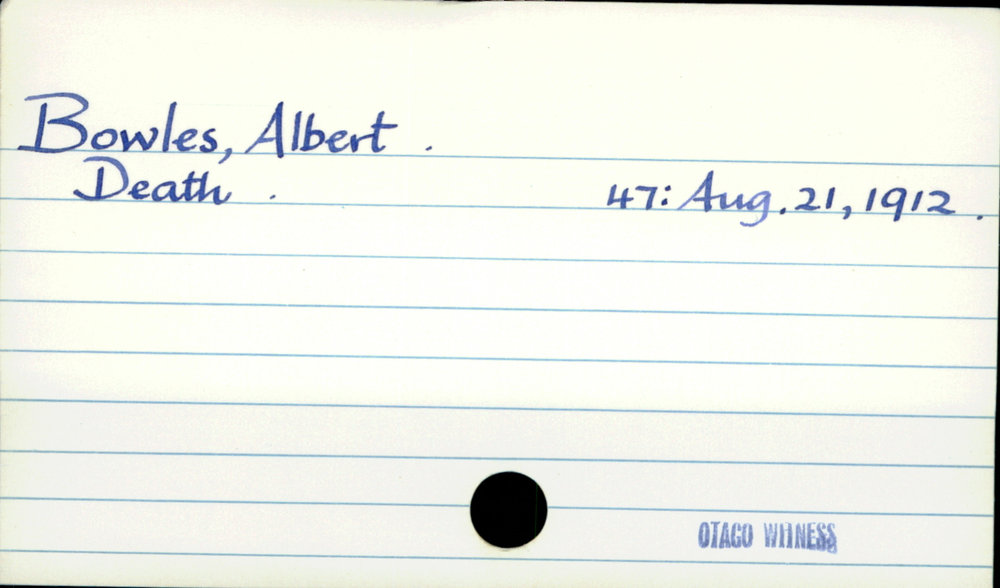 Bowles, Albert .
Death . 47: Aug. 21, 1912 .
OTAGO WITNESS